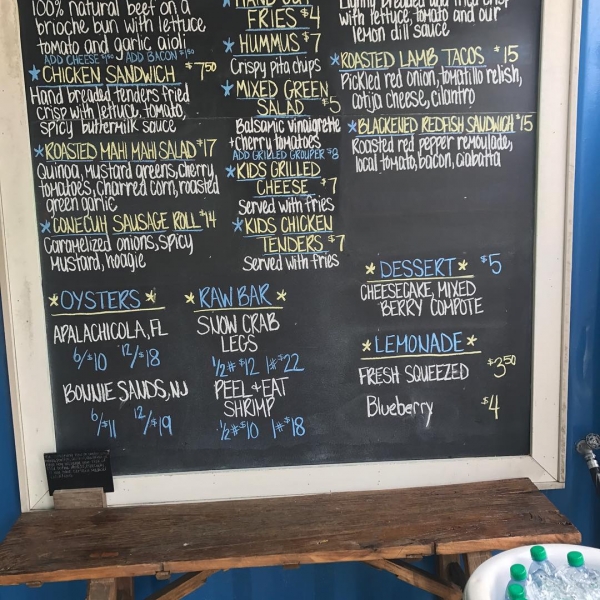 100% natural beef on a
brioche bun with lettuce
tomato and garlic aioli.
ADD CHEESE ADD BACON
*CHICKEN SANDWICH $7.50
Hand breaded tenders fried
crisp with lettuce, tomato,
spicy buttermilk sauce
*ROASTED MAHI MAHI SALAD $17
Quinoa, mustard greens, cherry,
tomatoes, charred corn, roasted
green garlic
*CONECUH SAUSAGE ROLL $14
Caramelized onions, spicy
mustard, hoagie
*OYSTERS*
APALACHICOLA, FL
6/$10 12/$18
BONNIE SANDS, NJ
6/$11 12/$19
*HAND CUT
FRIES $4
*HUMMUS $7
Crispy pita chips
*MIXED GREEN
SALAD $5
Balsamic vinaigrette
+cherry tomatoes
ADD GRILLED GROUPER $8
*KIDS GRILLED
CHEESE $7
served with fries
*KIDS CHICKEN
TENDERS $7
Served with fries
*RAW BAR*
SNOW CRAB
LEGS
1/2# $12 1# $22
PEEL & EAT
SHRIMP
1/2# $10 1# $18
Lightly breaded and fried crisp
with lettuce, tomato and our
lemon dill sauce
*ROASTED LAMB TACOS $15
Pickled red onion, tomatillo relish,
cotija cheese, cilantro
*BLACKENED REDFISH SANDWICH $15
Roasted red pepper remoulade,
local tomato, bacon, ciabatta
*DESSERT* $5
CHEESECAKE, MIXED
BERRY COMPOTE
*LEMONADE*
FRESH SQUEEZED $3.50
Blueberry $4